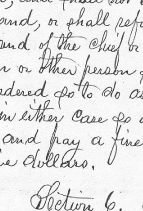 and, or shall ref
and of the chief or
n or other person
dered so to do as
in either case so
and pay a fine
e dollars.
Section 6.